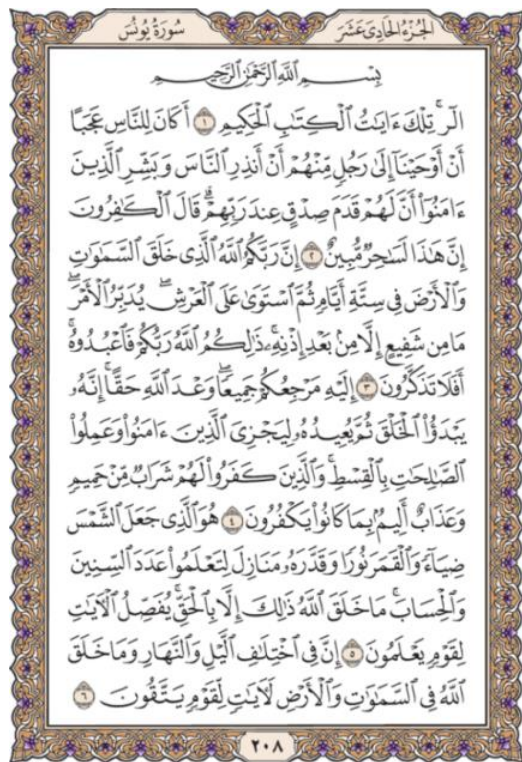 الجُزْءُ الحَادِي عَشَرَ
سُورَةُ يُونُسَ
بِسْمِ اللَّهِ الرَّحْمَٰنِ الرَّحِيمِ
الٓر ۚ تِلْكَ ءَايَٰتُ ٱلْكِتَٰبِ ٱلْحَكِيمِ ١ أَكَانَ لِلنَّاسِ عَجَبًا
أَنْ أَوْحَيْنَآ إِلَىٰ رَجُلٍ مِّنْهُمْ أَنْ أَنذِرِ ٱلنَّاسَ وَبَشِّرِ ٱلَّذِينَ
ءَامَنُوٓا۟ أَنَّ لَهُمْ قَدَمَ صِدْقٍ عِندَ رَبِّهِمْ ۗ قَالَ ٱلْكَٰفِرُونَ
إِنَّ هَٰذَا لَسَٰحِرٌ مُّبِينٌ ٢ إِنَّ رَبَّكُمُ ٱللَّهُ ٱلَّذِى خَلَقَ ٱلسَّمَٰوَٰتِ
وَٱلْأَرْضَ فِى سِتَّةِ أَيَّامٍ ثُمَّ ٱسْتَوَىٰ عَلَى ٱلْعَرْشِ ۖ يُدَبِّرُ ٱلْأَمْرَ ۖ
مَا مِن شَفِيعٍ إِلَّا مِنۢ بَعْدِ إِذْنِهِۦ ۚ ذَٰلِكُمُ ٱللَّهُ رَبُّكُمْ فَٱعْبُدُوهُ ۚ
أَفَلَا تَذَكَّرُونَ ٣ إِلَيْهِ مَرْجِعُكُمْ جَمِيعًا ۖ وَعْدَ ٱللَّهِ حَقًّا ۚ إِنَّهُۥ
يَبْدَؤُا۟ ٱلْخَلْقَ ثُمَّ يُعِيدُهُۥ لِيَجْزِىَ ٱلَّذِينَ ءَامَنُوا۟ وَعَمِلُوا۟
ٱلصَّٰلِحَٰتِ بِٱلْقِسْطِ ۚ وَٱلَّذِينَ كَفَرُوا۟ لَهُمْ شَرَابٌ مِّنْ حَمِيمٍ
وَعَذَابٌ أَلِيمٌۢ بِمَا كَانُوا۟ يَكْفُرُونَ ٤ هُوَ ٱلَّذِى جَعَلَ ٱلشَّمْسَ
ضِيَآءً وَٱلْقَمَرَ نُورًا وَقَدَّرَهُۥ مَنَازِلَ لِتَعْلَمُوا۟ عَدَدَ ٱلسِّنِينَ
وَٱلْحِسَابَ ۚ مَا خَلَقَ ٱللَّهُ ذَٰلِكَ إِلَّا بِٱلْحَقِّ ۚ يُفَصِّلُ ٱلْءَايَٰتِ
لِقَوْمٍ يَعْلَمُونَ ٥ إِنَّ فِى ٱخْتِلَٰفِ ٱلَّيْلِ وَٱلنَّهَارِ وَمَا خَلَقَ
ٱللَّهُ فِى ٱلسَّمَٰوَٰتِ وَٱلْأَرْضِ لَءَايَٰتٍ لِّقَوْمٍ يَتَّقُونَ ٦
٢٠٨